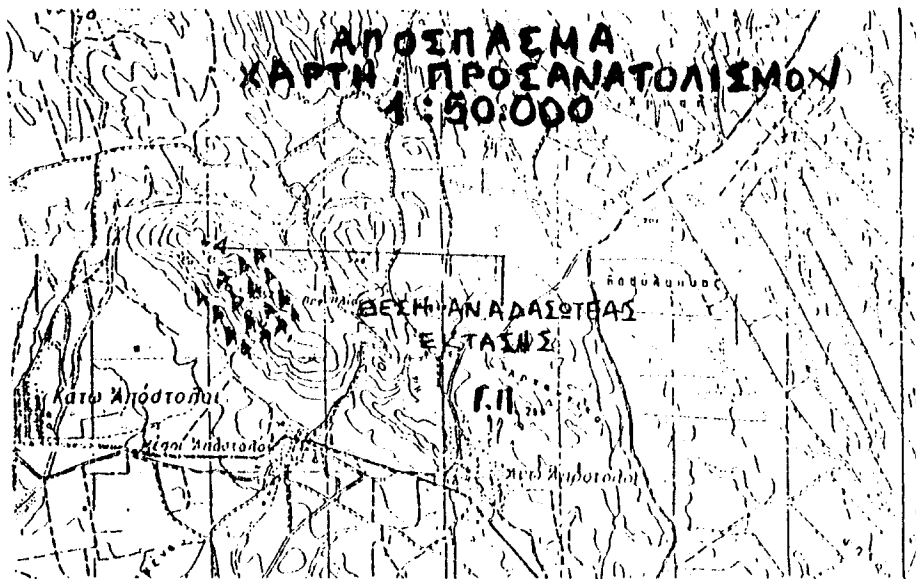 ΑΠΟΣΠΑΣΜΑ
ΧΑΡΤΗ ΠΡΟΣΑΝΑΤΟΛΙΣΜΟΥ
1:50.000
ΘΕΣΗ ΑΝΑΔΑΣΩΤΕΑΣ
ΕΚΤΑΣΗΣ
Κάτω Ἀπόστολοι
Γ.Π.
Μέσοι Ἀπόστολοι
Ἄνω Ἀπόστολοι